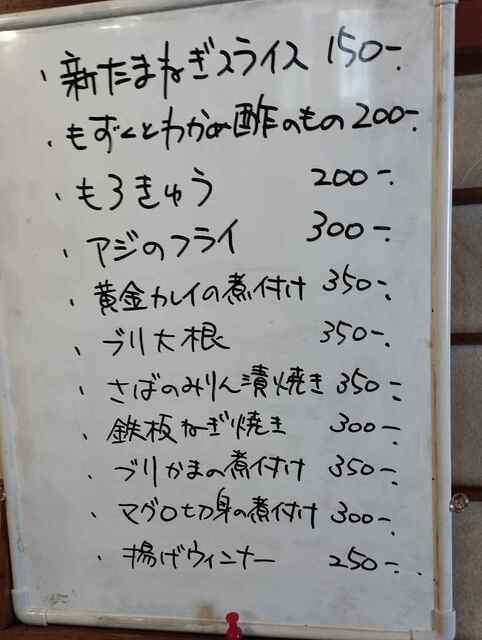 ・新たまねぎスライス 150-.
・もずくとわかめ酢のもの 200-.
・もろきゅう 200-.
・アジのフライ 300-.
・黄金カレイの煮付け 350-.
・ブリ大根 350-.
・さばのみりん漬焼き 350-.
・鉄板ねぎ焼き 300-.
・ブリかまの煮付け 350-.
・マグロ切身の煮付け 300-.
・揚げウィンナー 250-.